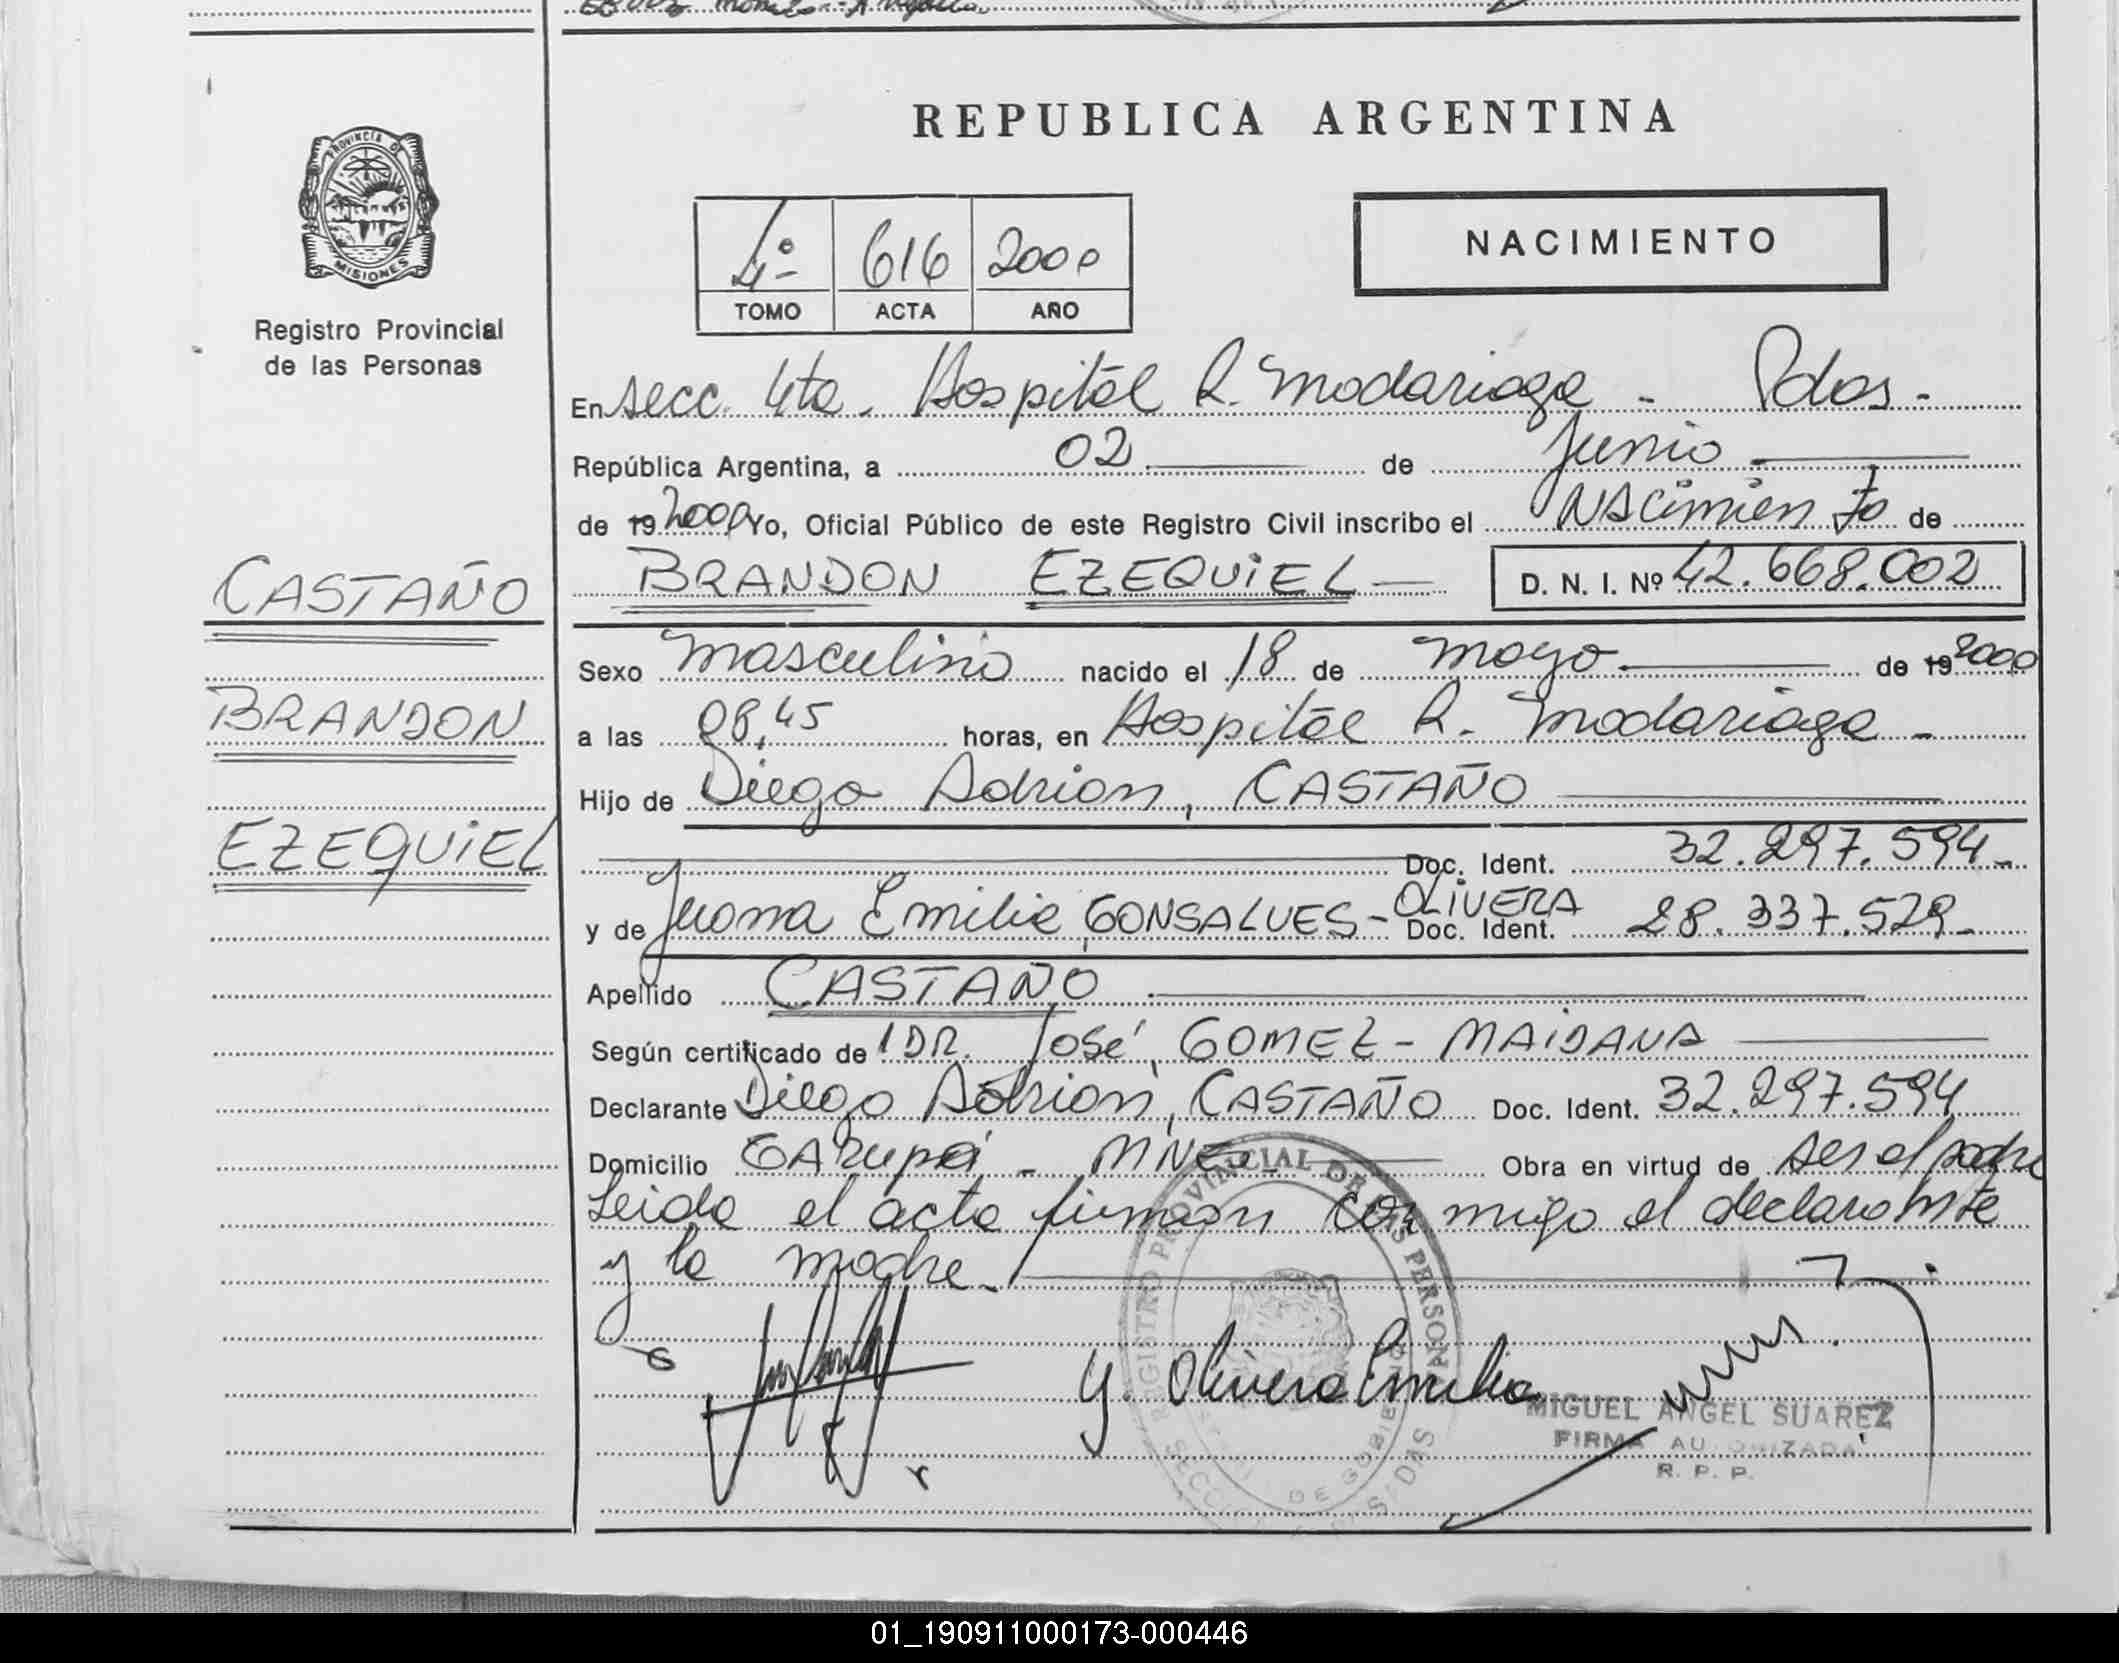 REPUBLICA ARGENTINA
PROVINCIA DE MISIONES
Registro Provincial
de las Personas
4º 616 2000
TOMO ACTA AÑO
NACIMIENTO
En secc. 4ta. Hospital R. Madariaga - Pdas.
República Argentina, a 02 de Junio
de 19 2000 Yo, Oficial Público de este Registro Civil inscribo el Nacimiento de
BRANDON EZEQUIEL D. N. I. Nº 42.668.002
CASTAÑO
BRANDON
EZEQUIEL
Sexo masculino nacido el 18 de mayo de 19 2000
a las 08,45 horas, en Hospital R. Madariaga -
Hijo de Diego Adrian, CASTAÑO
Doc. Ident. 32.297.594
y de Juana Emilia GONSALVES-OLIVERA Doc. Ident. 28.337.529
Apellido CASTAÑO
Según certificado de DR. José, GOMEZ - MAIDANA
Declarante Diego Adrian, CASTAÑO Doc. Ident. 32.297.594
Domicilio GARUPÁ - MNES. Obra en virtud de ser el padre
Leida el acta firman conmigo el declarante
y la madre.
Y. Olivera Emilia
REGISTRO PROVINCIAL DE LAS PERSONAS
MIGUEL ANGEL SUAREZ
FIRMA AUTORIZADA
R. P. P.
01_190911000173-000446